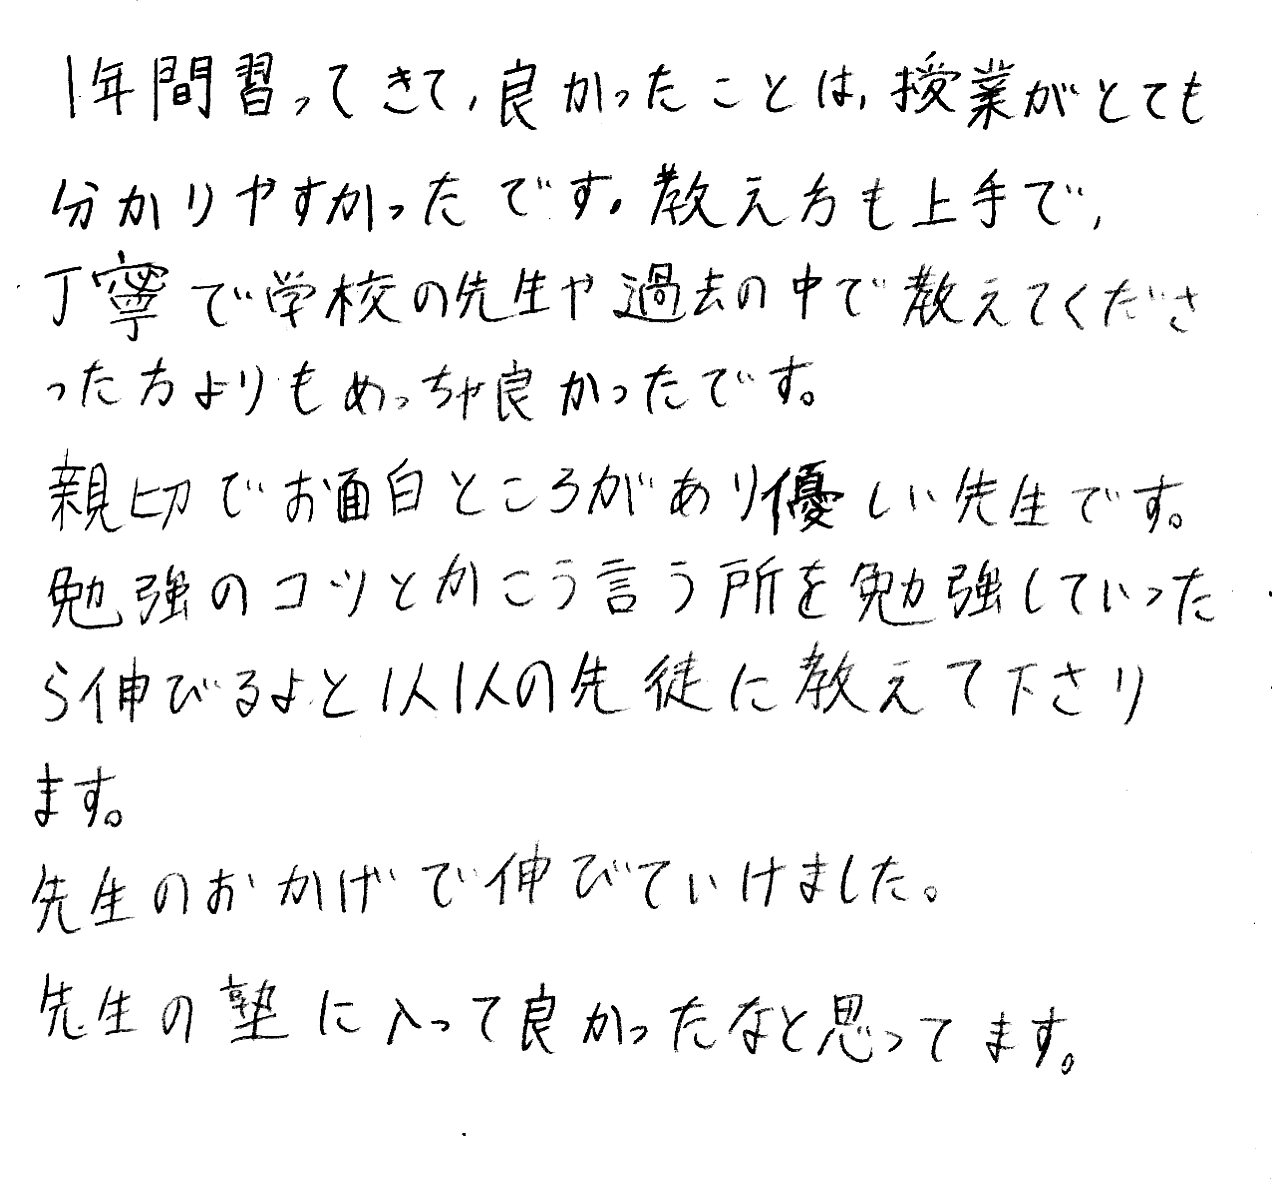 1年間習ってきて,良かったことは,授業がとても
分かりやすかったです。教え方も上手で,
丁寧で学校の先生や過去の中で教えてくださ
った方よりもめっちゃ良かったです。
親切でお面白ところがあり優しい先生です。
勉強のコツとかこう言う所を勉強していった
ら伸びるよと1人1人の先徒に教えて下さり
ます。
先生のおかげで伸びていけました。
先生の塾に入って良かったなと思ってます。